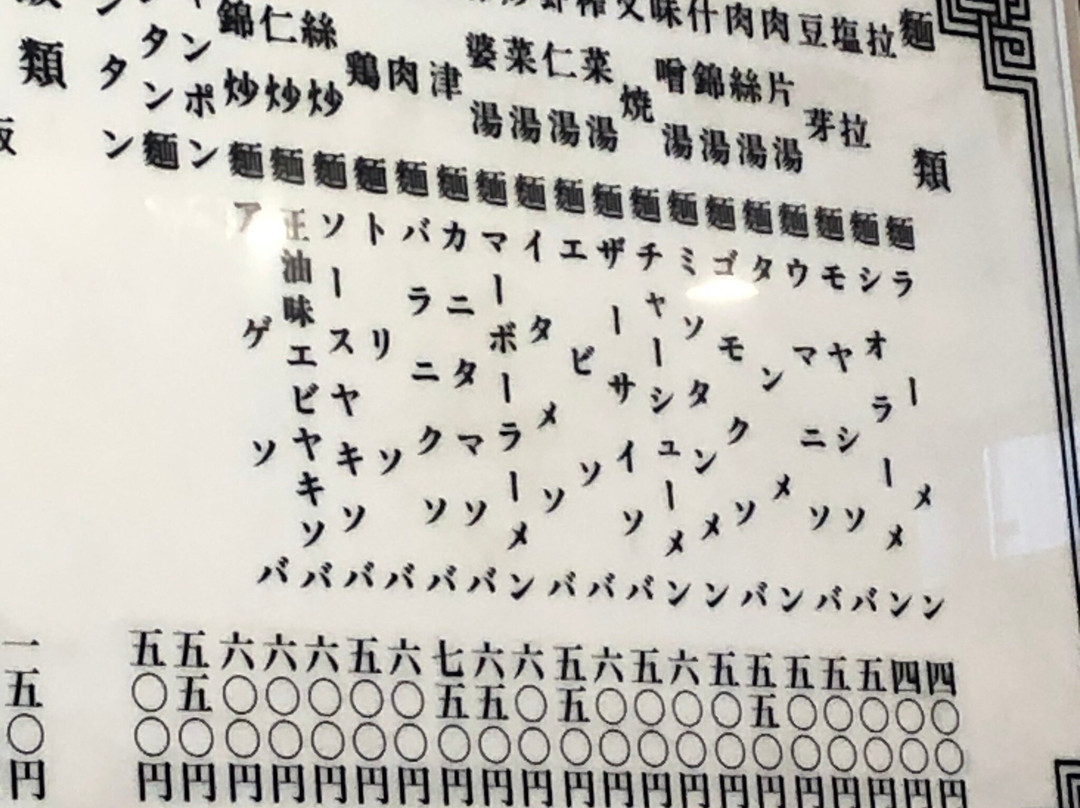 麵類
拉麵 ラーメン 四〇〇円
塩拉麵 シオラーメン 四〇〇円
豆芽麵 モヤシソバ 五〇〇円
肉片湯麵 ウマニソバ 五〇〇円
肉絲湯麵 タンメン 五〇〇円
什錦湯麵 ゴモクソバ 五五〇円
味噌湯麵 ミソタンメン 五〇〇円
叉焼麵 チャーシューメン 六〇〇円
榨菜湯麵 ザーサイソバ 五〇〇円
虾仁湯麵 エビソバ 六〇〇円
菜湯麵 イタメソバ 五五〇円
婆湯麵 マーボーラーメン 六〇〇円
津麵 カニタマソバ 六五〇円
肉麵 バラニクソバ 七五〇円
鶏麵 トリソバ 六〇〇円
絲炒麵 ソースヤキソバ 五〇〇円
仁炒麵 王油味エビヤキソバ 六〇〇円
錦炒麵 アゲソバ 六〇〇円
ンポン 六〇〇円
タンタン麵 五五〇円
ンタン 五〇〇円
類
一五〇円